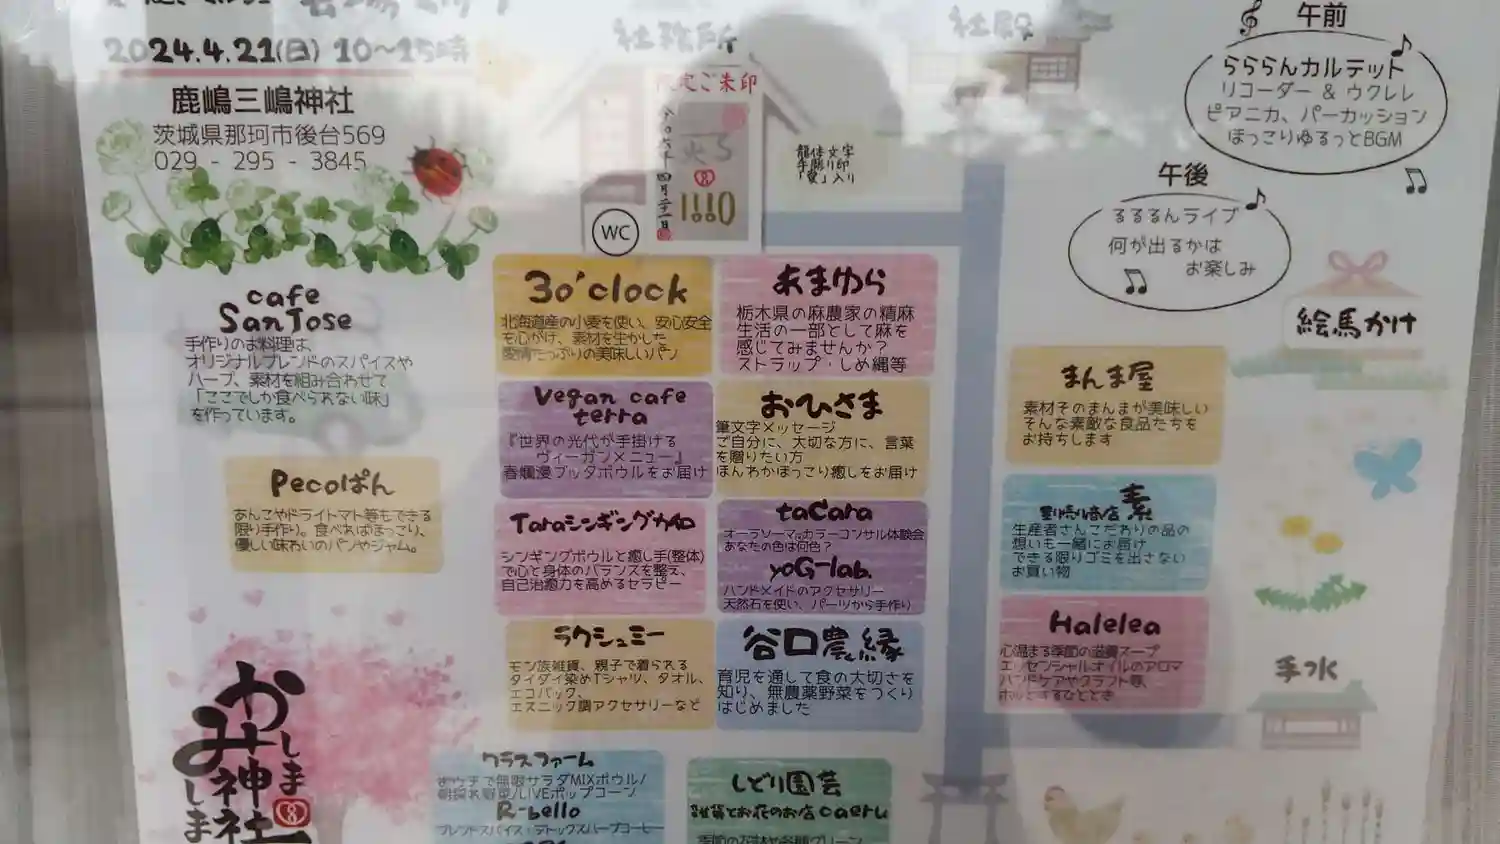 2024.4.21(日) 10~15時
鹿嶋三嶋神社
茨城県那珂市後台569
029 - 295 - 3845
社務所
限定ご朱印
WC
社殿
午前
らららんカルテット
リコーダー & ウクレレ
ピアニカ、パーカッション
ほっこりゆるっとBGM
午後
るるるんライブ
何が出るかは
お楽しみ
絵馬かけ
cafe
SanJose
手作りのお料理は、
オリジナルブレンドのスパイスや
ハーブ、素材を組み合わせて
「ここでしか食べられない味」
を作っています。
Pecoぱん
あんこやドライトマト等もできる
限り手作り。食べればほっこり、
優しい味わいのパンやジャム。
3o'clock
北海道産の小麦を使い、安心安全
を心がけ、素材を生かした
愛情たっぷりの美味しいパン
あまゆら
栃木県の麻農家の精麻
生活の一部として麻を
感じてみませんか?
ストラップ・しめ縄等
Vegan cafe
terra
『世界の光代が手掛ける
ヴィーガン×ニュー』
春爛漫ブッダボウルをお届け
おひさま
筆文字メッセージ
ご自分に、大切な方に、言葉
を贈りたい方
ほんわかほっこり癒しをお届け
Taraシンギング力和
シンギングボウルと癒し手(整体)
で心と身体のバランスを整え、
自己治癒力を高めるセラピー
taCara
オーラソーマ®カラーコンサル体験会
あなたの色は何色?
yoG-lab.
ハンドメイドのアクセサリー
天然石を使い、パーツから手作り
ラクシュミー
モン族雑貨、親子で着られる
タイダイ染めTシャツ、タオル、
エコバック、
エスニック調アクセサリーなど
谷口農縁
育児を通して食の大切さを
知り、無農薬野菜をつくり
はじめました
まんま屋
素材そのまんまが美味しい
そんな素敵な食品たちを
お持ちします
素
生産者さんこだわりの品の
想いも一緒にお届け
できる限りゴミを出さない
お買い物
Halelea
心温まる季節の滋養スープ
エッセンシャルオイルのアロマ
ハンドケアやクラフト等、
ホッとするひととき
手水
クラスファーム
おウチで無限サラダMIXボウル/
朝採れ野菜/LIVEポップコーン
R-bello
ブレンドスパイス・デトックスハーブコーヒー
しどり園芸
雑貨とお花のお店caeru
かしま
みしま
神社